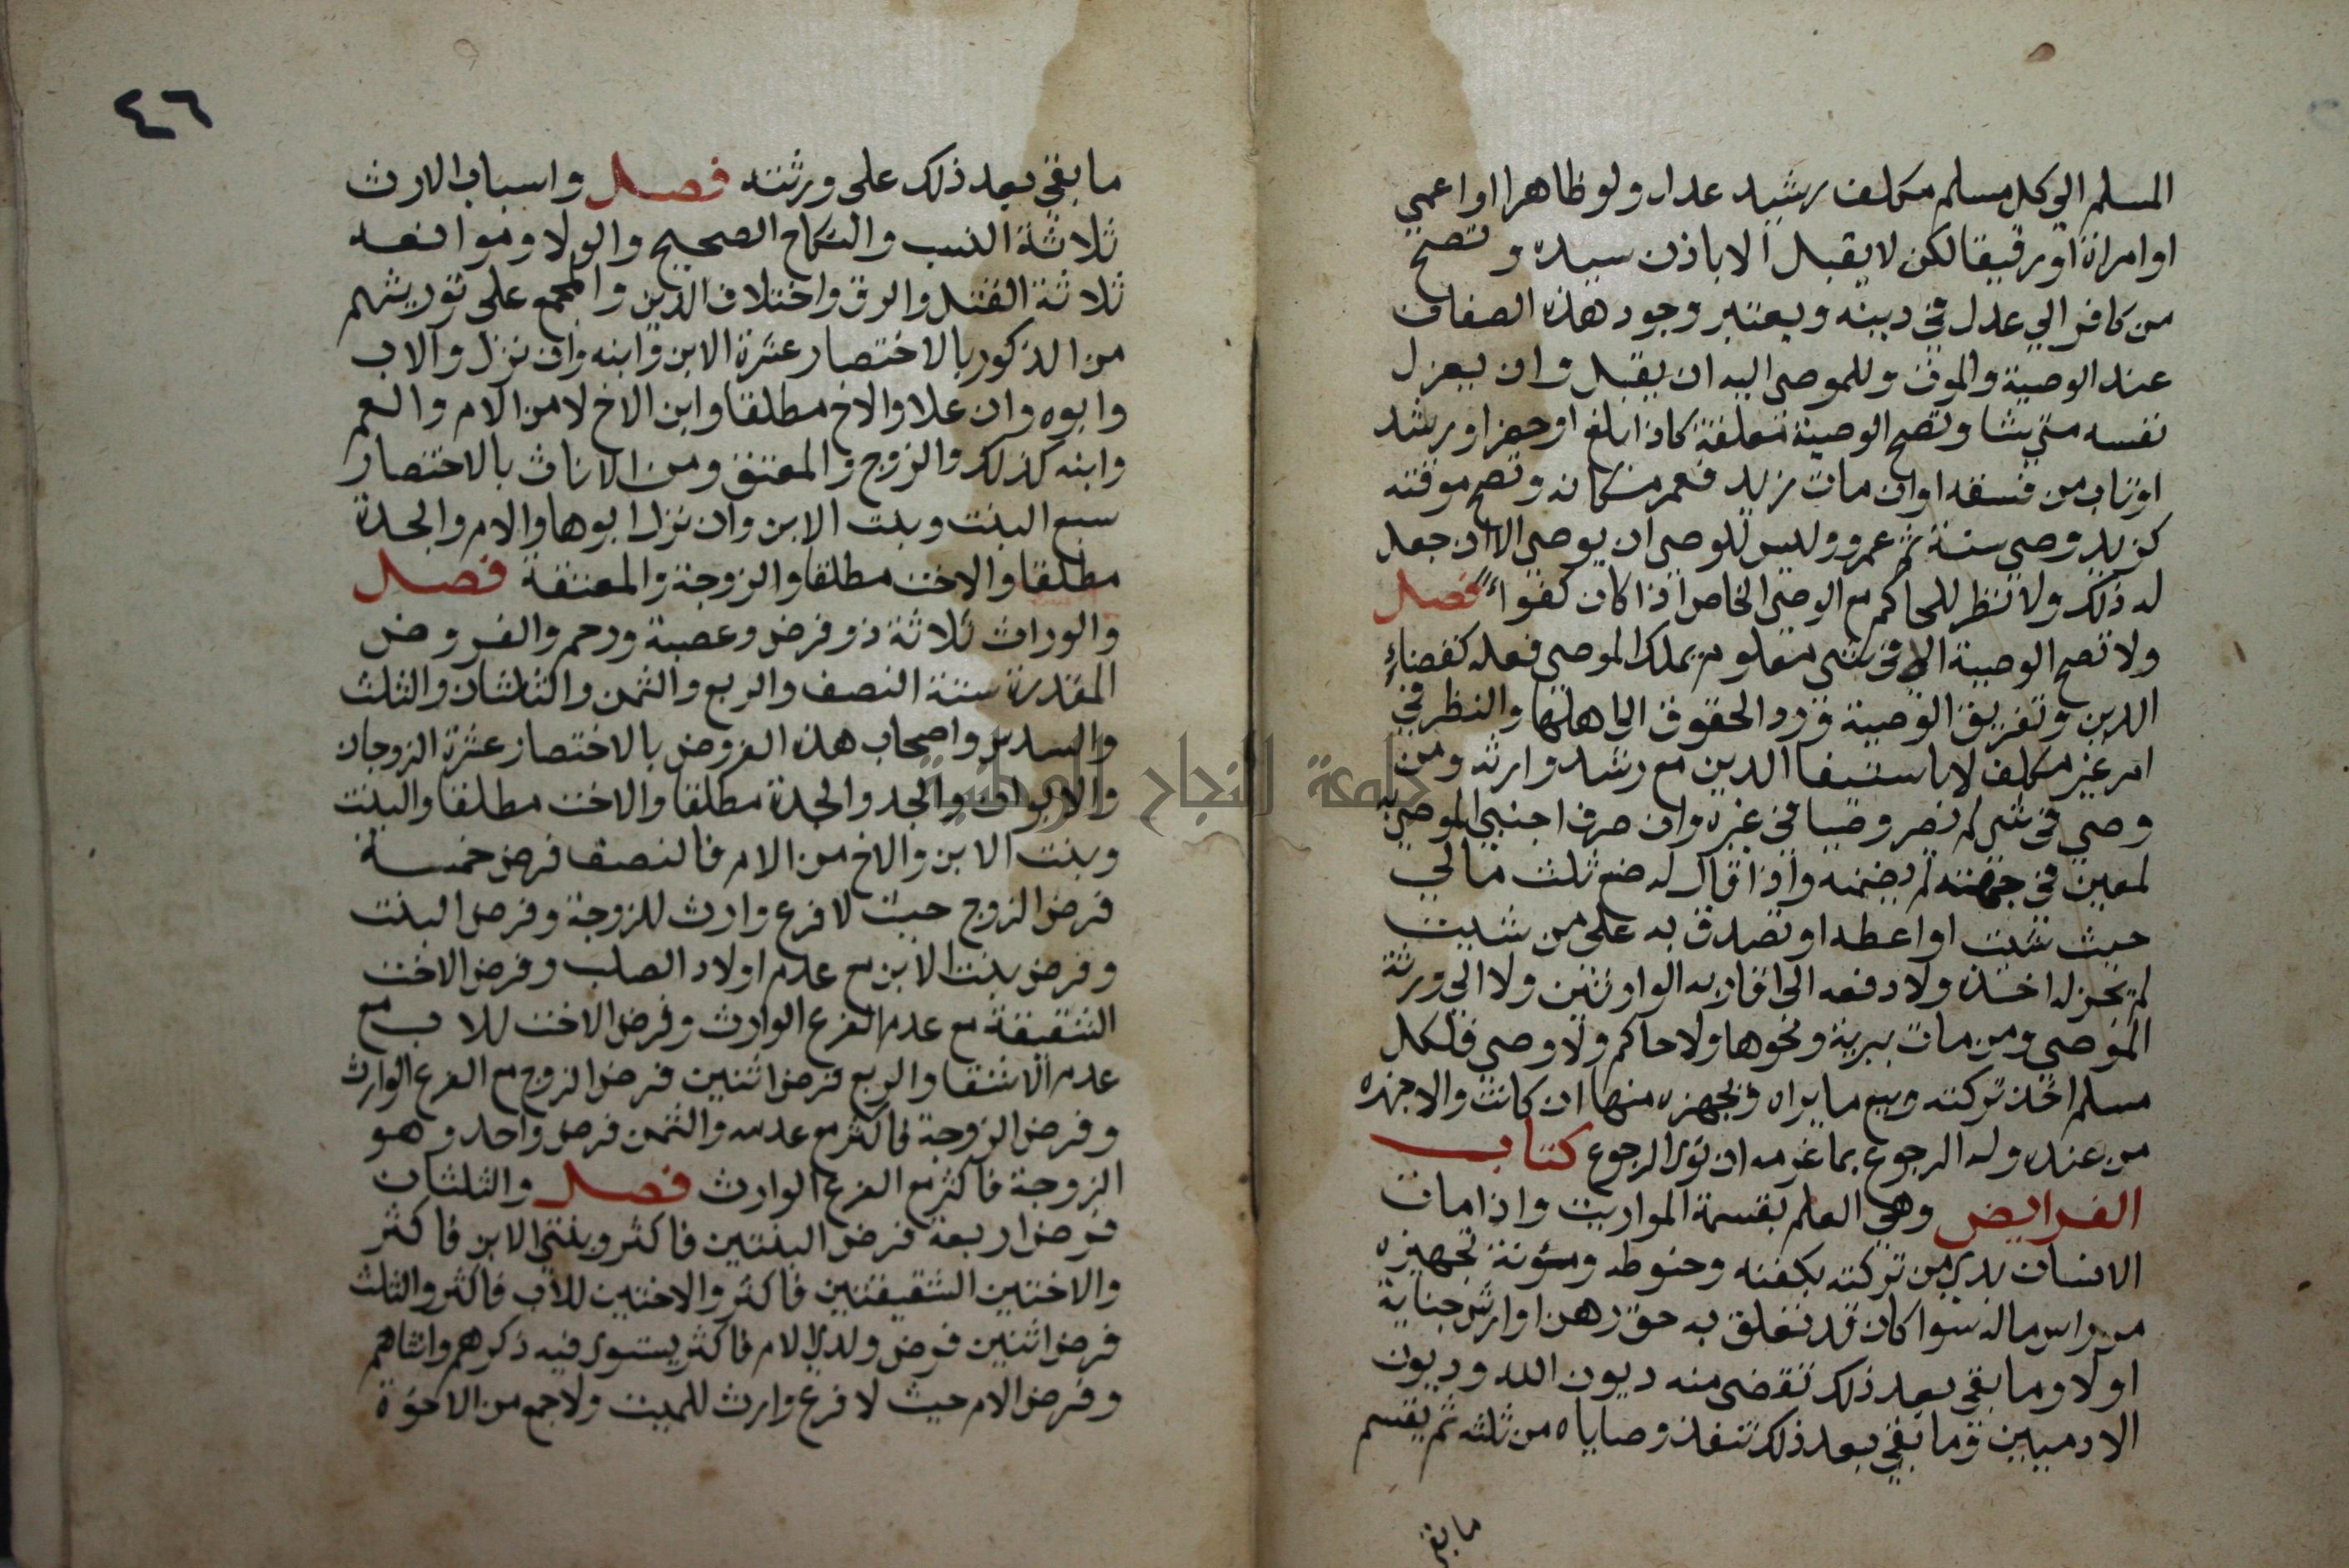 المسلم الي كل مسلم مكلف رشيد عدل ولو ظاهرا او اعمي
او امراة او رقيقا لكن لا يقبل الا باذن سيده وتصح
من كافر الي عدل في دينه ويعتبر وجود هذه الصفات
عند الوصية والموت وللموصى اليه ان يقبل وان يعزل
نفسه متي شا وتصح الوصية معلقة كاذا بلغ او حضر او رشد
او تاب من فسقه او ان مات زيد فعمر مكانه وتصح موقته
كزيد وصي سنة ثم عمرو وليس للوصي ان يوصي الا ان جعل
له ذلك ولا نظر للحاكم مع الوصي الخاص اذا كان كفواً فصل
ولا تصح الوصية الا في شي معلوم يملك الموصي فعله كقضاء
الدين وتفريق الوصية ورد الحقوق الى اهلها والنظر في
امر غير مكلف لا باستيفا الدين مع رشد وارثه ومن
وصي في شي لم يصر وصيا في غيره وان صرف اجنبي الموصي به
لمعين في جهته لم يضمنه واذا قال له ضع ثلث مالي
حيث شيت او اعطه او تصدق به على من شيت
لم يجز له اخذه ولا دفعه الى اقاربه الوارثين ولا الي ورثة
الموصي ومن مات ببرية ونحوها ولا حاكم ولا وصي فلكل
مسلم اخذ تركته وبيع ما يراه وتجهزه منها ان كانت والا جهزه
من عنده وله الرجوع بما غرمه ان نوى الرجوع كتاب
الفرايض وهي العلم بقسمة المواريث واذا مات
الانسان بدي من تركته بكفنه وحنوطه ومؤنة تجهيزه
من راس ماله سوا كان قد تعلق به حق رهن او ارش جناية
اولا وما بقي بعد ذلك تقضى منه ديون الله وديون
الادميين وما بقي بعد ذلك تنفذ وصاياه من ثلثه ثم يقسم
ما بقي
٤٦
ما بقي بعد ذلك على ورثته فصل واسباب الارث
ثلاثة النسب والنكاح الصحيح والولا وموانعه
ثلاثة القتل والرق واختلاف الدين والمجمع على توريثهم
من الذكور بالاختصار عشرة الابن وابنه وان نزل والاب
وابوه وان علا والاخ مطلقا وابن الاخ لا من الام والعم
وابنه كذلك والزوج والمعتق ومن الاناث بالاختصار
سبع البنت وبنت الابن وان نزل ابوها والام والجدة
مطلقا والاخت مطلقا والزوجة والمعتقة فصل
والوراث ثلاثة ذو فرض وعصبة ورحم والفروض
المقدرة ستة النصف والربع والثمن والثلثان والثلث
والسدس واصحاب هذه الفروض بالاختصار عشرة الزوجان
والابوان والجد والجدة مطلقا والاخت مطلقا والبنت
وبنت الابن والاخ من الام فالنصف فرض خمسة
فرض الزوج حيث لا فرع وارث للزوجة وفرض البنت
وفرض بنت الابن مع عدم اولاد الصلب وفرض الاخت
الشقيقة مع عدم الفرع الوارث وفرض الاخت للاب مع
عدم الاشقا والربع فرض اثنين فرض الزوج مع الفرع الوارث
وفرض الزوجة فاكثر مع عدمه والثمن فرض واحد وهو
الزوجة فاكثر مع الفرع الوارث فصل والثلثان
فرض اربعة فرض البنتين فاكثر وبنتي الابن فاكثر
والاختين الشقيقتين فاكثر والاختين للاب فاكثر والثلث
فرض اثنين فرض ولدي الام فاكثر يستوي فيه ذكرهم وانثاهم
وفرض الام حيث لا فرع وارث للميت ولا جمع من الاخوة
جامعة النجاح الوطنية